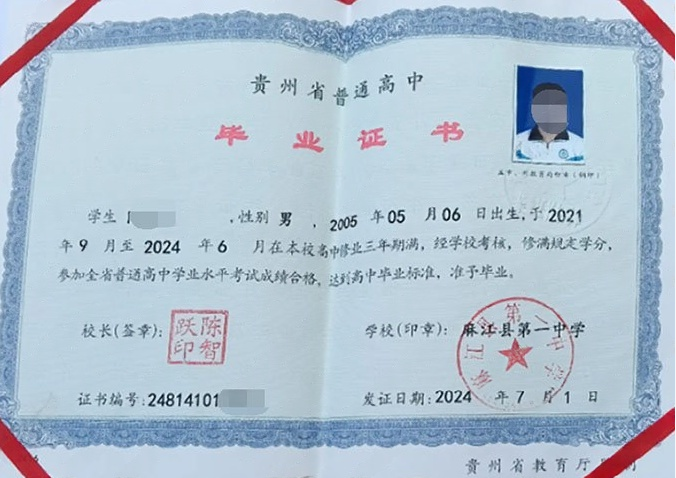 贵州省普通高中
毕业证书
学生 ,性别 男 , 2005 年 05 月 06 日出生,于 2021
年 9 月至 2024 年 6 月在本校高中修业三年期满, 经学校考核, 修满规定学分,
参加全省普通高中学业水平考试成绩合格, 达到高中毕业标准, 准予毕业。
校长(签章): 陈智跃印
学校(印章): 麻江县第一中学
证书编号: 24814101
发证日期: 2024 年 7 月 1 日
贵州省教育厅